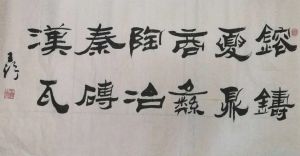 鎔鑄
夏鼎
商彝
陶冶
秦磚
漢瓦